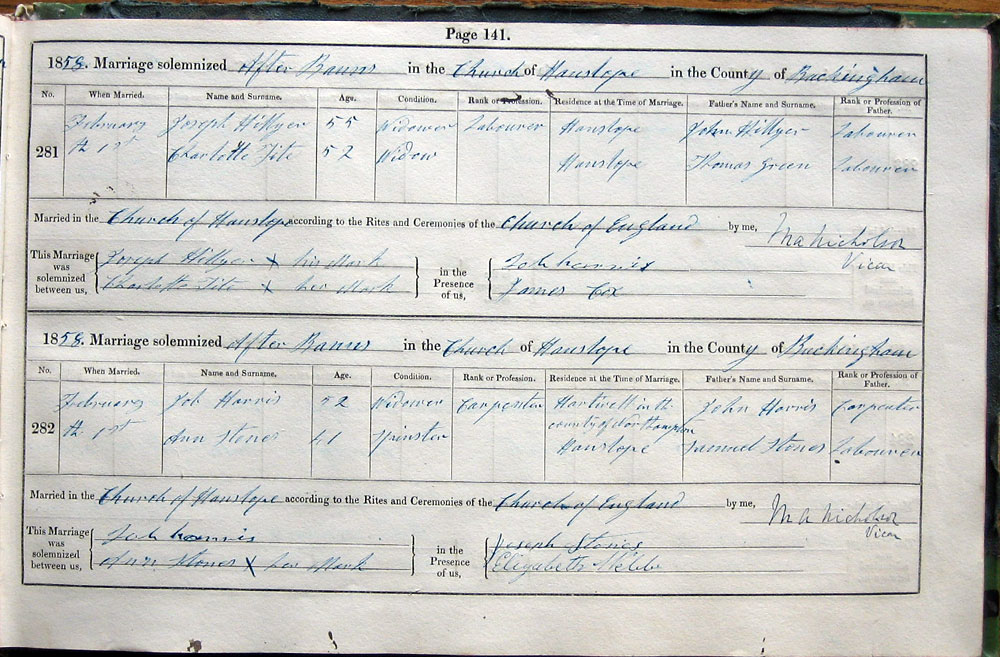 Page 141.
1858. Marriage solemnized After Banns in the Church of Hanslope in the County of Buckingham
No. When Married. Name and Surname. Age. Condition. Rank or Profession. Residence at the Time of Marriage. Father's Name and Surname. Rank or Profession of Father.
February Joseph Hillyer 55 Widower Labourer Hanslope John Hillyer Labourer
281 th 1st Charlotte Tite 52 Widow Hanslope Thomas Green Labourer
Married in the Church of Hanslope according to the Rites and Ceremonies of the Church of England by me, M A Nicholson
Vicar
This Marriage was solemnized between us, Joseph Hillyer X his Mark in the Presence of us, Job Harris
Charlotte Tite X her Mark James Cox
1858. Marriage solemnized After Banns in the Church of Hanslope in the County of Buckingham
No. When Married. Name and Surname. Age. Condition. Rank or Profession. Residence at the Time of Marriage. Father's Name and Surname. Rank or Profession of Father.
February Job Harris 52 Widower Carpenter Hartwell in the county of Northampton John Harris Carpenter
282 th 1st Ann Stones 41 Spinster Hanslope Samuel Stones Labourer
Married in the Church of Hanslope according to the Rites and Ceremonies of the Church of England by me, M A Nicholson
Vicar
This Marriage was solemnized between us, Job Harris in the Presence of us, Joseph Stones
Ann Stones X her Mark Elizabeth Webb